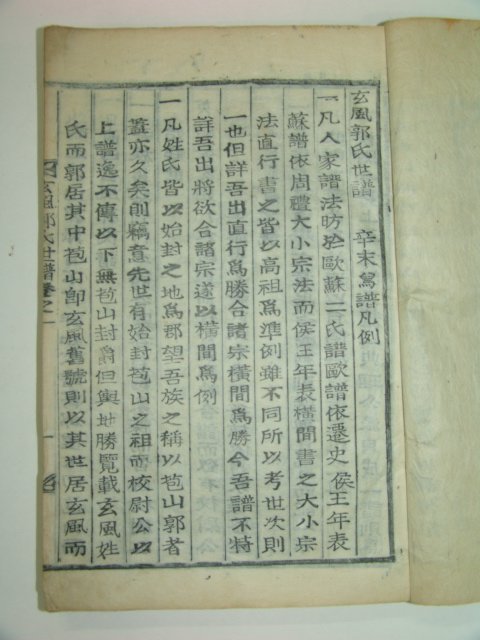 玄風郭氏世譜 辛末爲譜凡例
一凡人家譜法昉於歐蘇二氏譜歐譜依遷史侯王年表
蘇譜依周禮大小宗法而侯王年表橫間書之大小宗
法直行書之皆以高祖爲準例雖不同所以考世次則
一也但詳吾出直行爲勝合諸宗橫間爲勝今吾譜不特
詳吾出將欲合諸宗遂以橫間爲例
一凡姓氏皆以始封之地爲郡望吾族之稱以苞山郭者
蓋亦久矣則竊意先世有始封苞山之祖而校尉公以
上譜逸不傳以下無苞山封爵但輿地勝覽載玄風姓
氏而郭居其中苞山卽玄風舊號則以其世居玄風而
玄風郭氏世譜卷之一 一